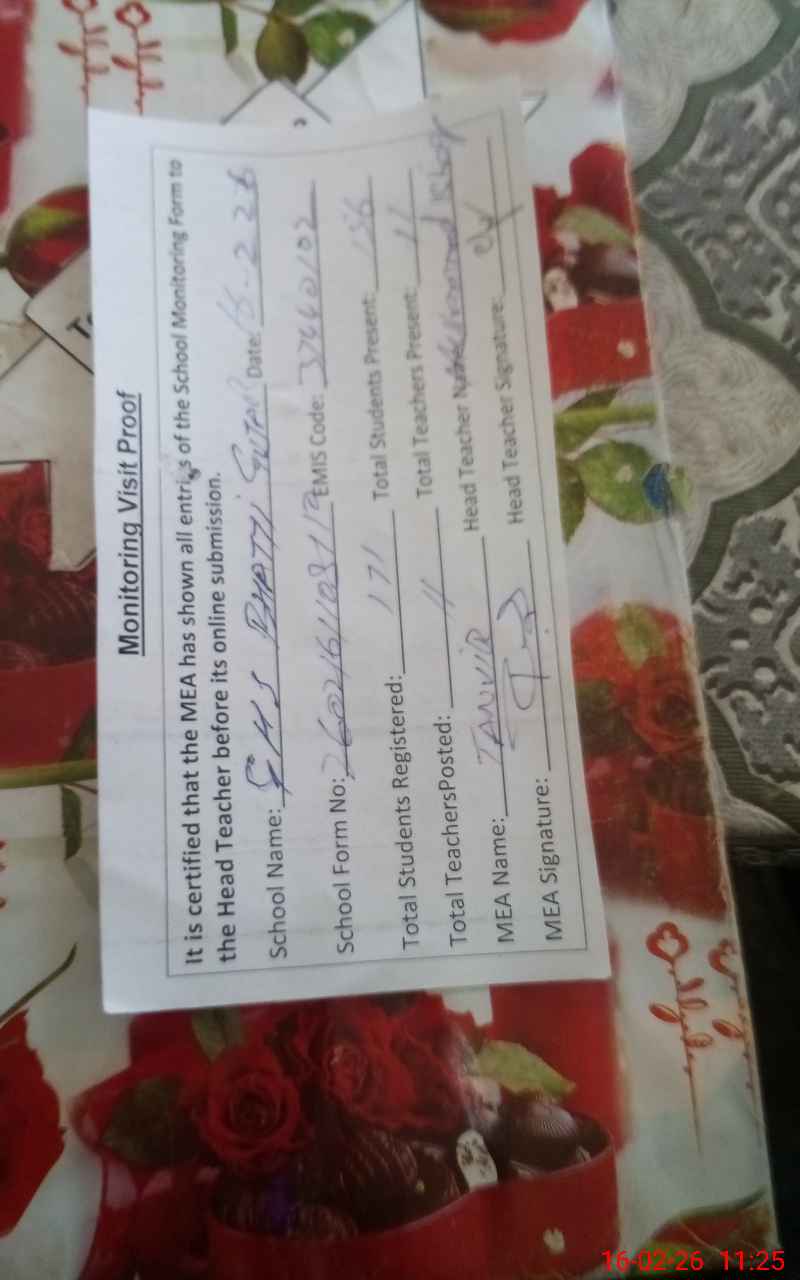 Monitoring Visit Proof
It is certified that the MEA has shown all entries of the School Monitoring Form to
the Head Teacher before its online submission.
School Name: GHS BHATTI Date:
School Form No: EMIS Code: 37440102
Total Students Registered: 171 Total Students Present: 136
Total TeachersPosted: 11 Total Teachers Present: 11
MEA Name: TANVIR Head Teacher Muhammad
MEA Signature: Head Teacher Signature:
16-02-26 11:25